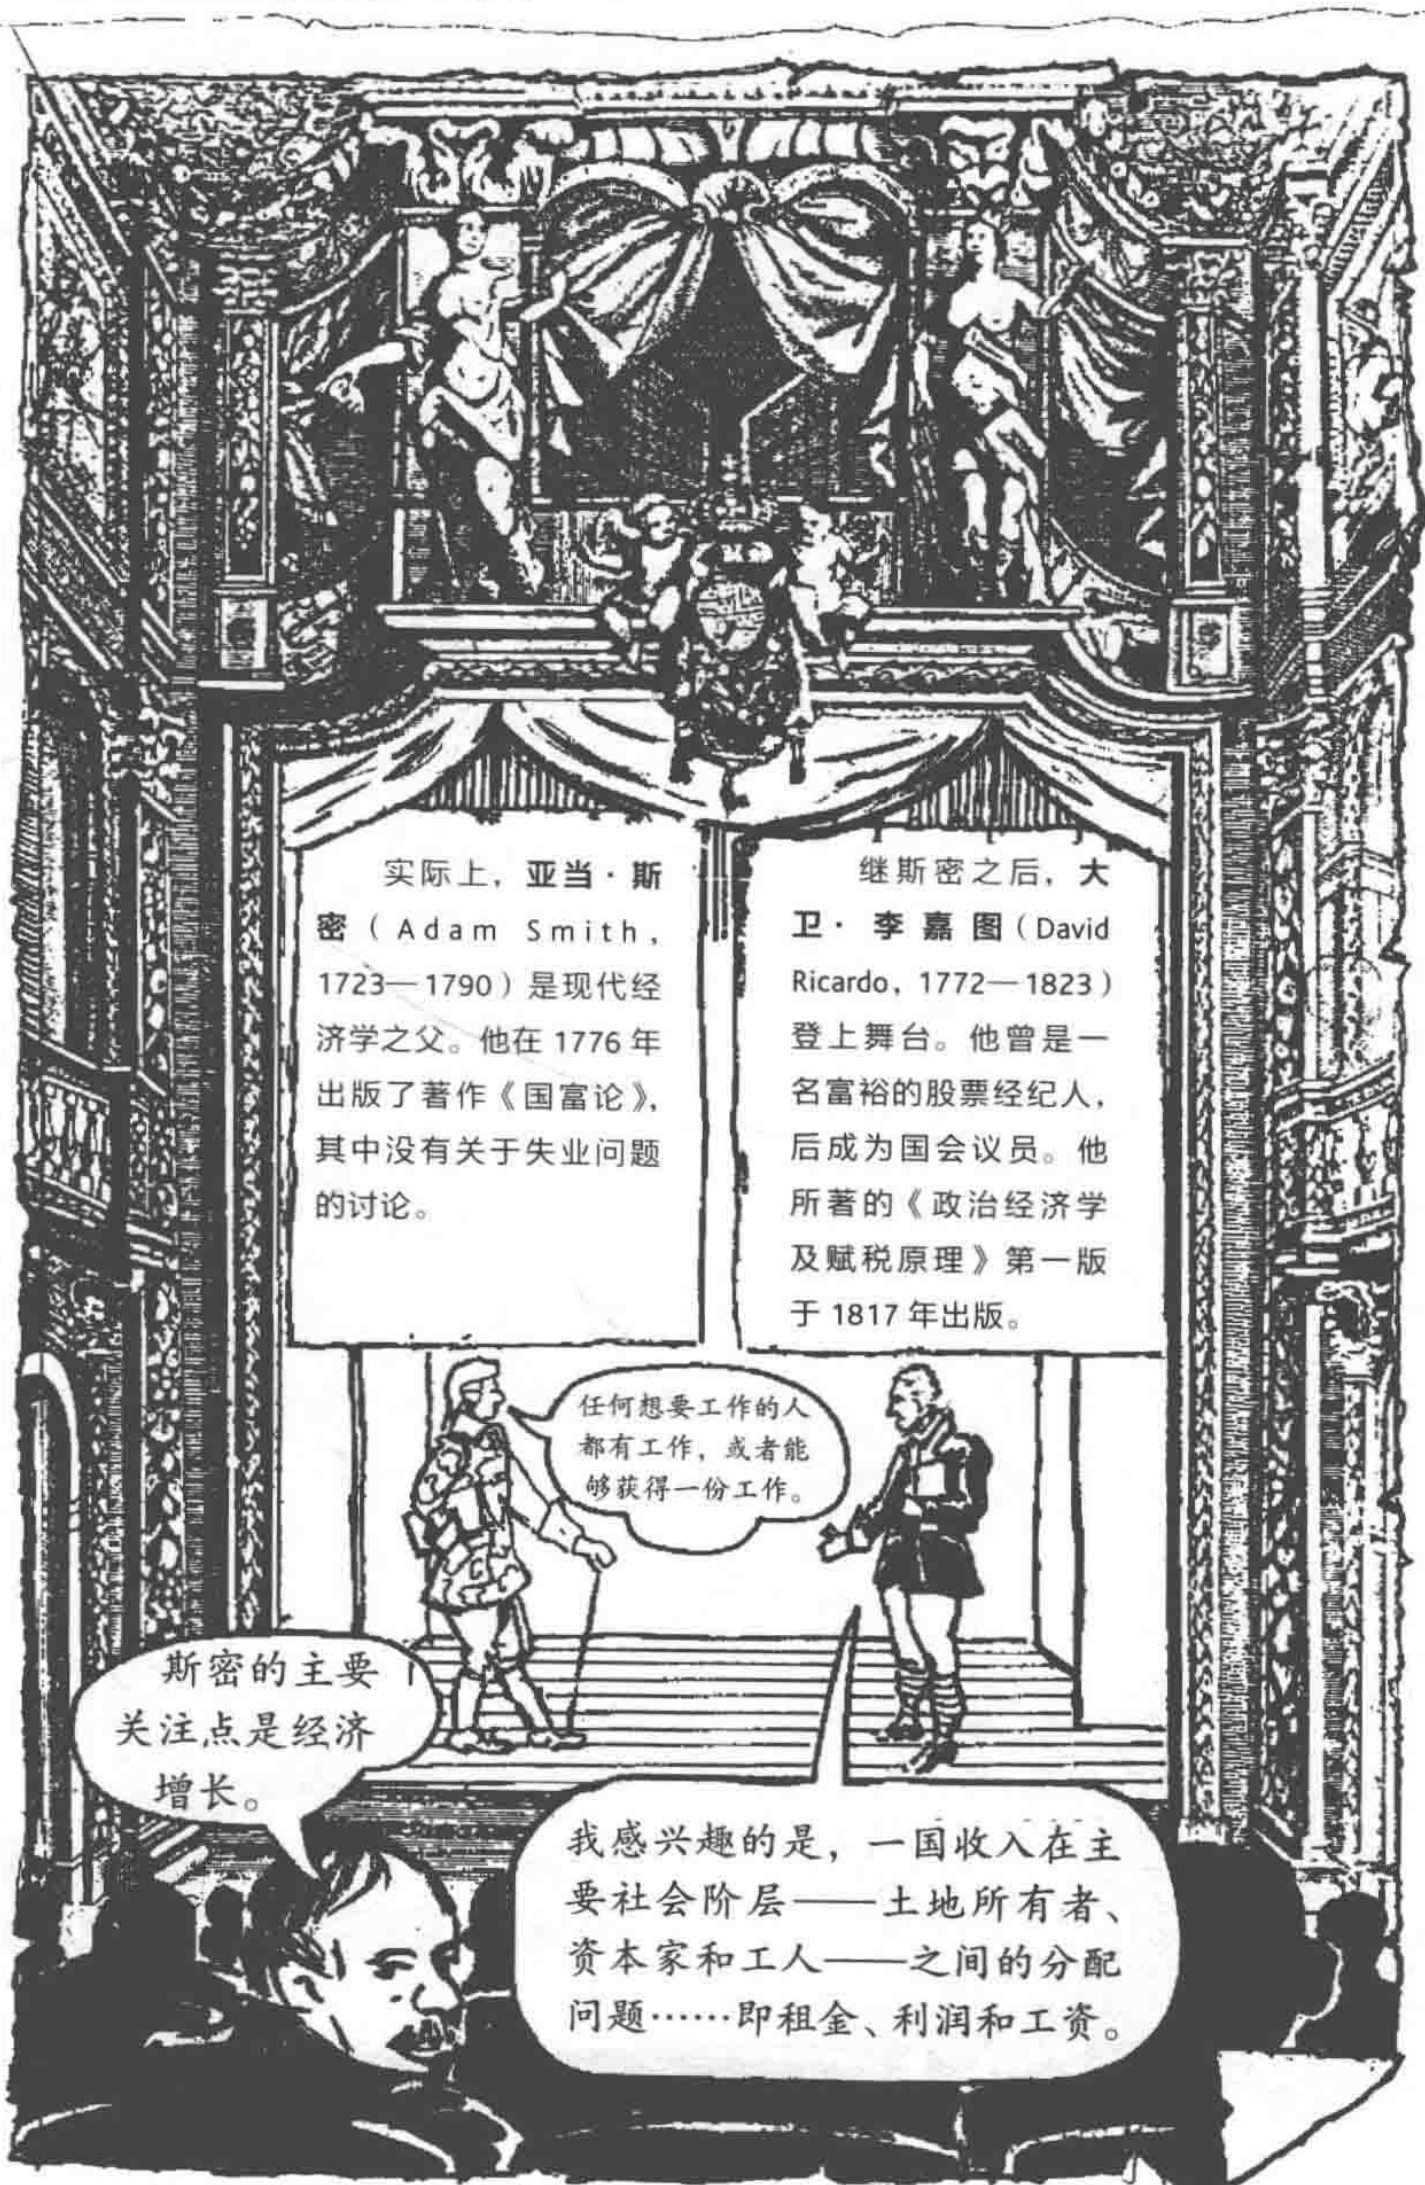 实际上，亚当·斯
密（Adam Smith，
1723—1790）是现代经
济学之父。他在 1776 年
出版了著作《国富论》，
其中没有关于失业问题
的讨论。
继斯密之后，大
卫·李嘉图（David
Ricardo，1772—1823）
登上舞台。他曾是一
名富裕的股票经纪人，
后成为国会议员。他
所著的《政治经济学
及赋税原理》第一版
于 1817 年出版。
任何想要工作的人
都有工作，或者能
够获得一份工作。
斯密的主要
关注点是经济
增长。
我感兴趣的是，一国收入在主
要社会阶层——土地所有者、
资本家和工人——之间的分配
问题……即租金、利润和工资。